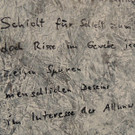 Schicht für Schicht zum
doch Risse im Gewebe je
zeigen Spuren
menschlichen Daseins
im Interesse der Allgem